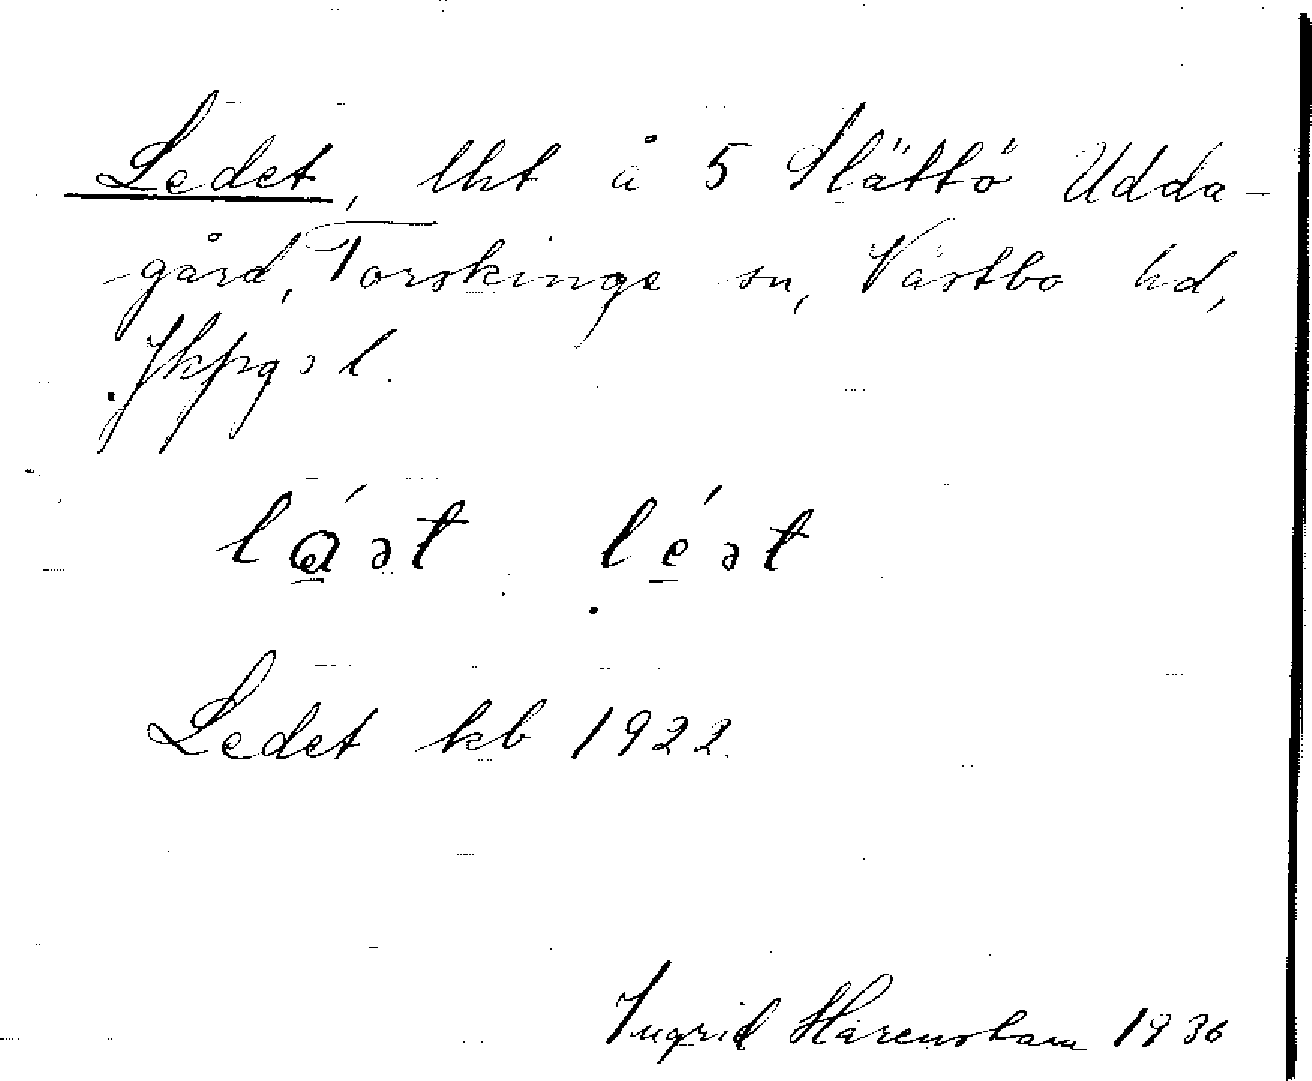 Ledet, lht å 5 Slättö Udda-
gård, Torskinge sn, Västbo hd,
Jkpgs l.
léət
Ledet kb 1922.
Ingrid Härenstam 1936